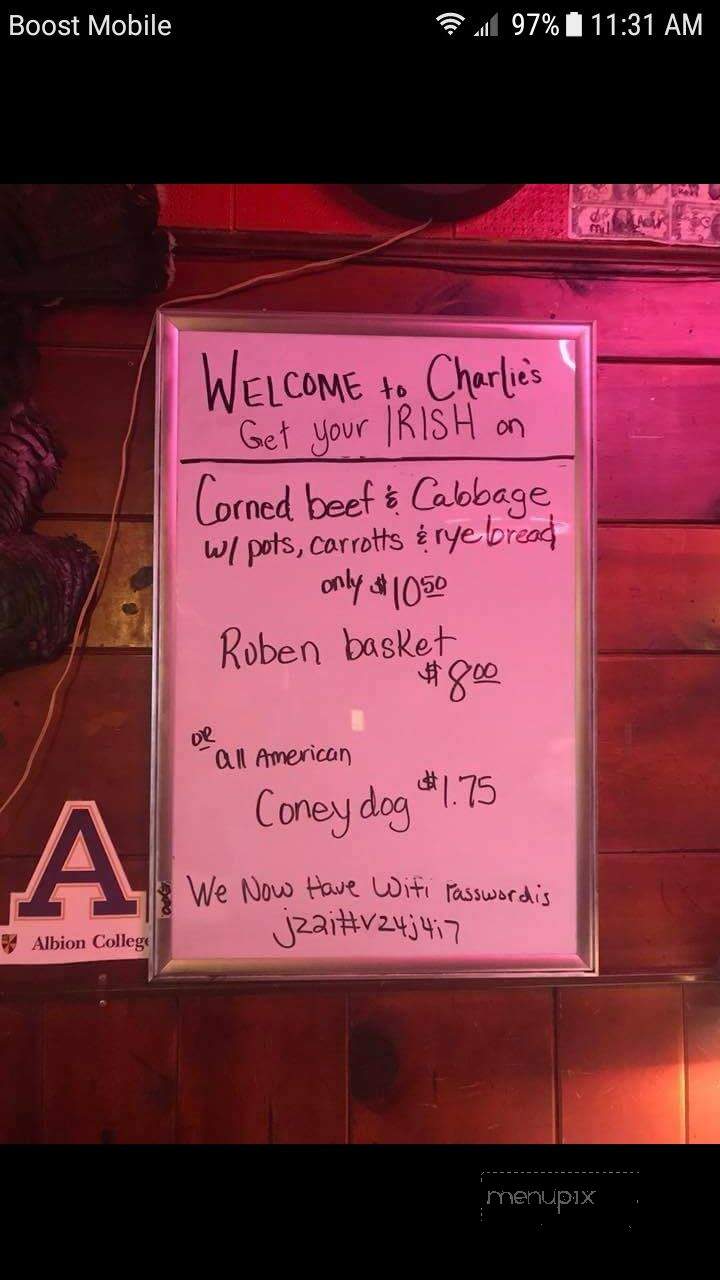 Boost Mobile 97% 11:31 AM
WELCOME to Charlie's
Get your IRISH on
Corned beef & Cabbage
w/ pots, carrotts & rye bread
only $10 50
Ruben basket
$8 00
OR
all American
Coney dog $1.75
We Now Have Wifi Password is
jz2i#vz4j4i7
A
Albion College
menupix